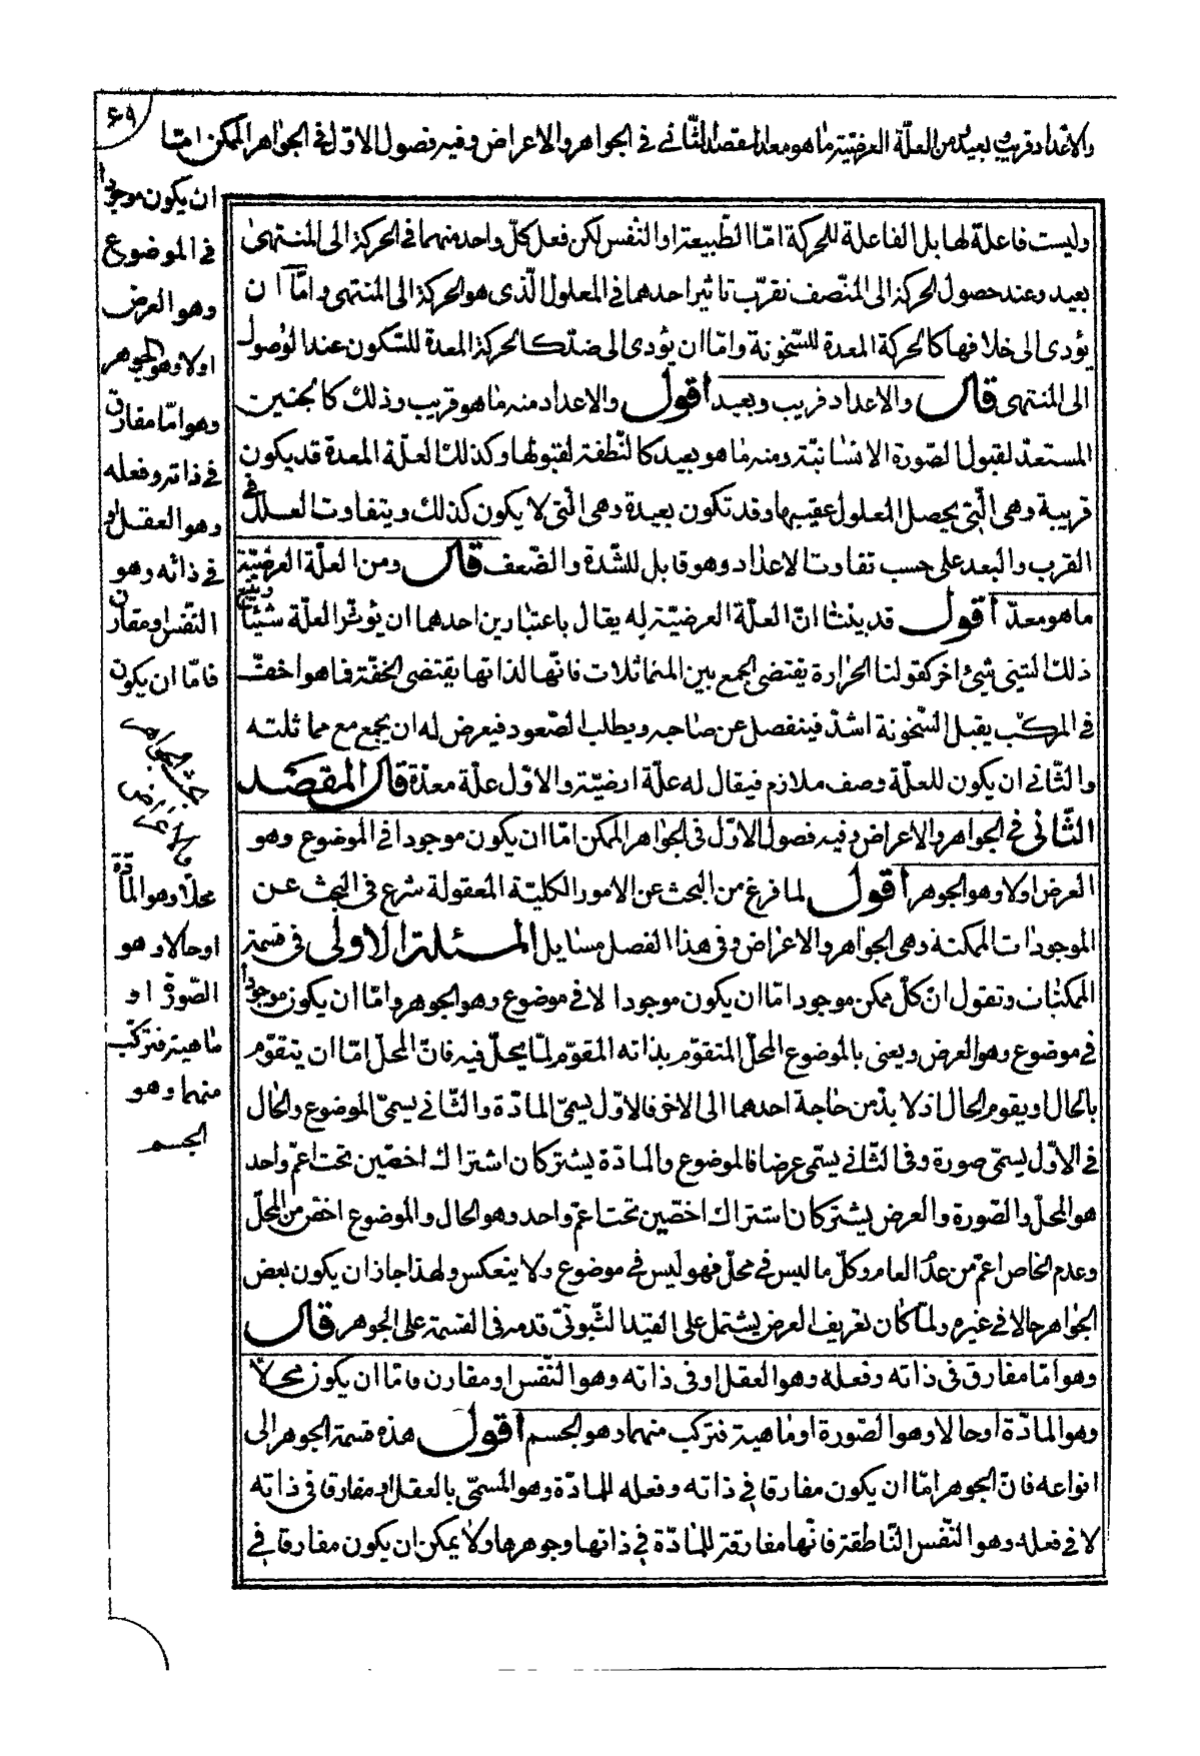 ۶۹
والاعداد قريب وبعيد ومن العلّة العرضيّة ما هو معد المقصد الثّانى فى الجواهر والاعراض وفيه فصول الاوّل فى الجواهر الممكن امّا
ان يكون موجودا
فى الموضوع
وهو العرض
اولا وهو الجوهر
وهو امّا مفارق
فى ذاته وفعله
وهو العقل او
فى ذاته وهو
النّفس او مقارن
فامّا ان يكون
محلّا وهو المادّة
او حالا وهو
الصّورة او
ما هيته فتركّب
منهما وهو
الجسم
بحث الجواهر
والاعراض
وليست فاعلة لها بل الفاعلة للحركة امّا الطّبيعة او النّفس لكن فعل كلّ واحد منهما فى الحركة الى المنتهىٰ
بعيد وعند حصول الحركة الى المنصف تقرّب تاثير احدهما فى المعلول الّذى هو الحركة الى المنتهى وامّا ان
يؤدى الى خلافها كالحركة المعدة للسّخونة وامّا ان يؤدى الى ضدّ كالحركة المعدة للسّكون عند الوصول
الى المنتهى قال والاعداد قريب وبعيد اقول والاعداد منه ما هو قريب وذلك كالجنين
المستعدّ لقبول الصّورة الانسانيّة ومنه ما هو بعيد كالنّطفة لقبولها وكذلك العلّة المعدة قد يكون
قريبة وهى الّتى يحصل المعلول عقيبها وقد تكون بعيدة وهى الّتى لا يكون كذلك ويتفاوت العلل فى
القرب والبعد على حسب تفاوت الاعداد وهو قابل للشّدة والضّعف قال ومن العلّة العرضيّة
ما هو معدّ اقول قد بيّنّا انّ العلّة العرضيّة له يقال باعتبارين احدهما ان يؤثّر العلّة شيئا ويتبع
ذلك الشىء شىء اخر كقولنا الحرارة يقتضى الجمع بين المتماثلات فانّها لذاتها يقتضى الخفّة فما هو اخفّ
فى المركّب يقبل السّخونة اشدّ فينفصل عن صاحبه ويطلب الصّعود فيعرض له ان يجمع مع مماثلته
والثّانى ان يكون للعلّة وصف ملازم فيقال له علّة ارضيّة والاوّل علّة معدّة قال المقصد
الثّانى فى الجواهر والاعراض وفيه فصول الاوّل فى الجواهر الممكن امّا ان يكون موجودا فى الموضوع وهو
العرض اولا وهو الجوهر اقول لما فرغ من البحث عن الامور الكليّة المعقولة شرع فى البحث عن
الموجودات الممكنة وهى الجواهر والاعراض وفى هذا الفصل مسايل المسئلة الاولى فى قسمة
الممكنات وتقول انّ كلّ ممكن موجود امّا ان يكون موجودا لا فى موضوع وهو الجوهر وامّا ان يكون موجودا
فى موضوع وهو العرض ويعنى بالموضوع المحلّ المتقوّم بذاته المقوّم لما يحلّ فيه فانّ المحلّ امّا ان يتقوّم
بالحال او يقوم الحال اذ لا بدّ من حاجة احدهما الى الاخر فالاوّل يسمّى المادّة والثّانى يسمّى الموضوع والحال
فى الاوّل يسمّى صورة وفى الثّانى يسمّى عرضا فالموضوع والمادّة يشتركان اشتراك اخصّين تحت اعمّ واحد
هو المحلّ والصّورة والعرض يشتركان اشتراك اخصّين تحت اعمّ واحد وهو الحال والموضوع اخصّ من المحلّ
وعدم الخاص اعمّ من عدم العام وكلّ ما ليس فى محلّ فهو ليس فى موضوع ولا ينعكس ولهذا جاز ان يكون بعض
الجواهر حالا فى غيره ولمّا كان تعريف العرض يشتمل على القيد الثّبوتىّ قدمه فى القسمة على الجوهر قال
وهو امّا مفارق فى ذاته وفعله وهو العقل او فى ذاته وهو النّفس او مقارن فامّا ان يكون محلّا
وهو المادّة او حالا وهو الصّورة او ما هيته فتركب منهما وهو الجسم اقول هذه قسمة الجوهر الى
انواعه فانّ الجوهر امّا ان يكون مفارقا فى ذاته وفعله للمادّة وهو المسمّى بالعقل او مفارقا فى ذاته
لا فى فعله وهو النّفس النّاطقة فانّها مفارقة للمادّة فى ذاتها وجوهرها ولا يمكن ان يكون مفارقا فى